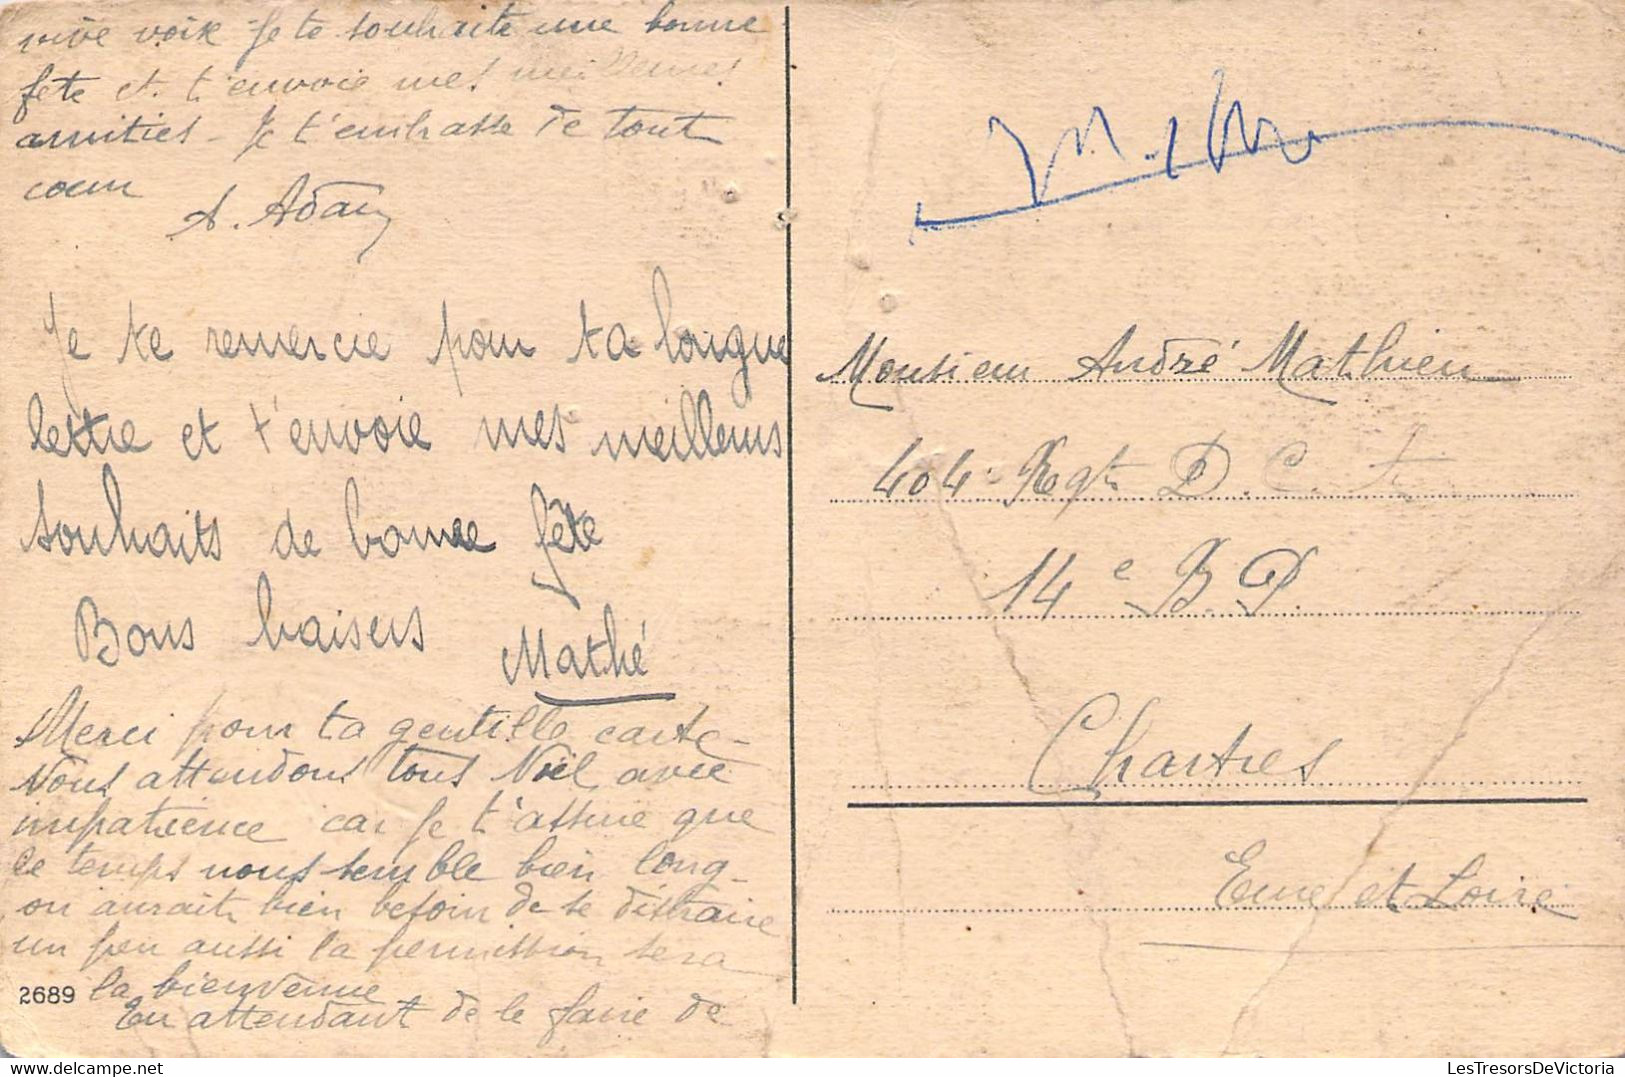 vive voix je te souhaite une bonne
fête et t'envoie mes meilleures
amitiés - Je t'embrasse de tout
coeur
A. Adam
Je te remercie pour ta longue
lettre et t'envoie mes meilleurs
souhaits de bonne fête
Bons baisers
Mathé
Merci pour ta gentille carte -
Nous attendons tous Noël avec
impatience car je t'assure que
le temps nous semble bien long -
on aurait bien besoin de se distraire
un peu aussi la permission sera
la bienvenue
2689
En attendant de le faire de
Monsieur André Mathieu
404e Regt D. C. A
14e B. D.
Chartres
Eure et Loire
LesTresorsDeVictoria